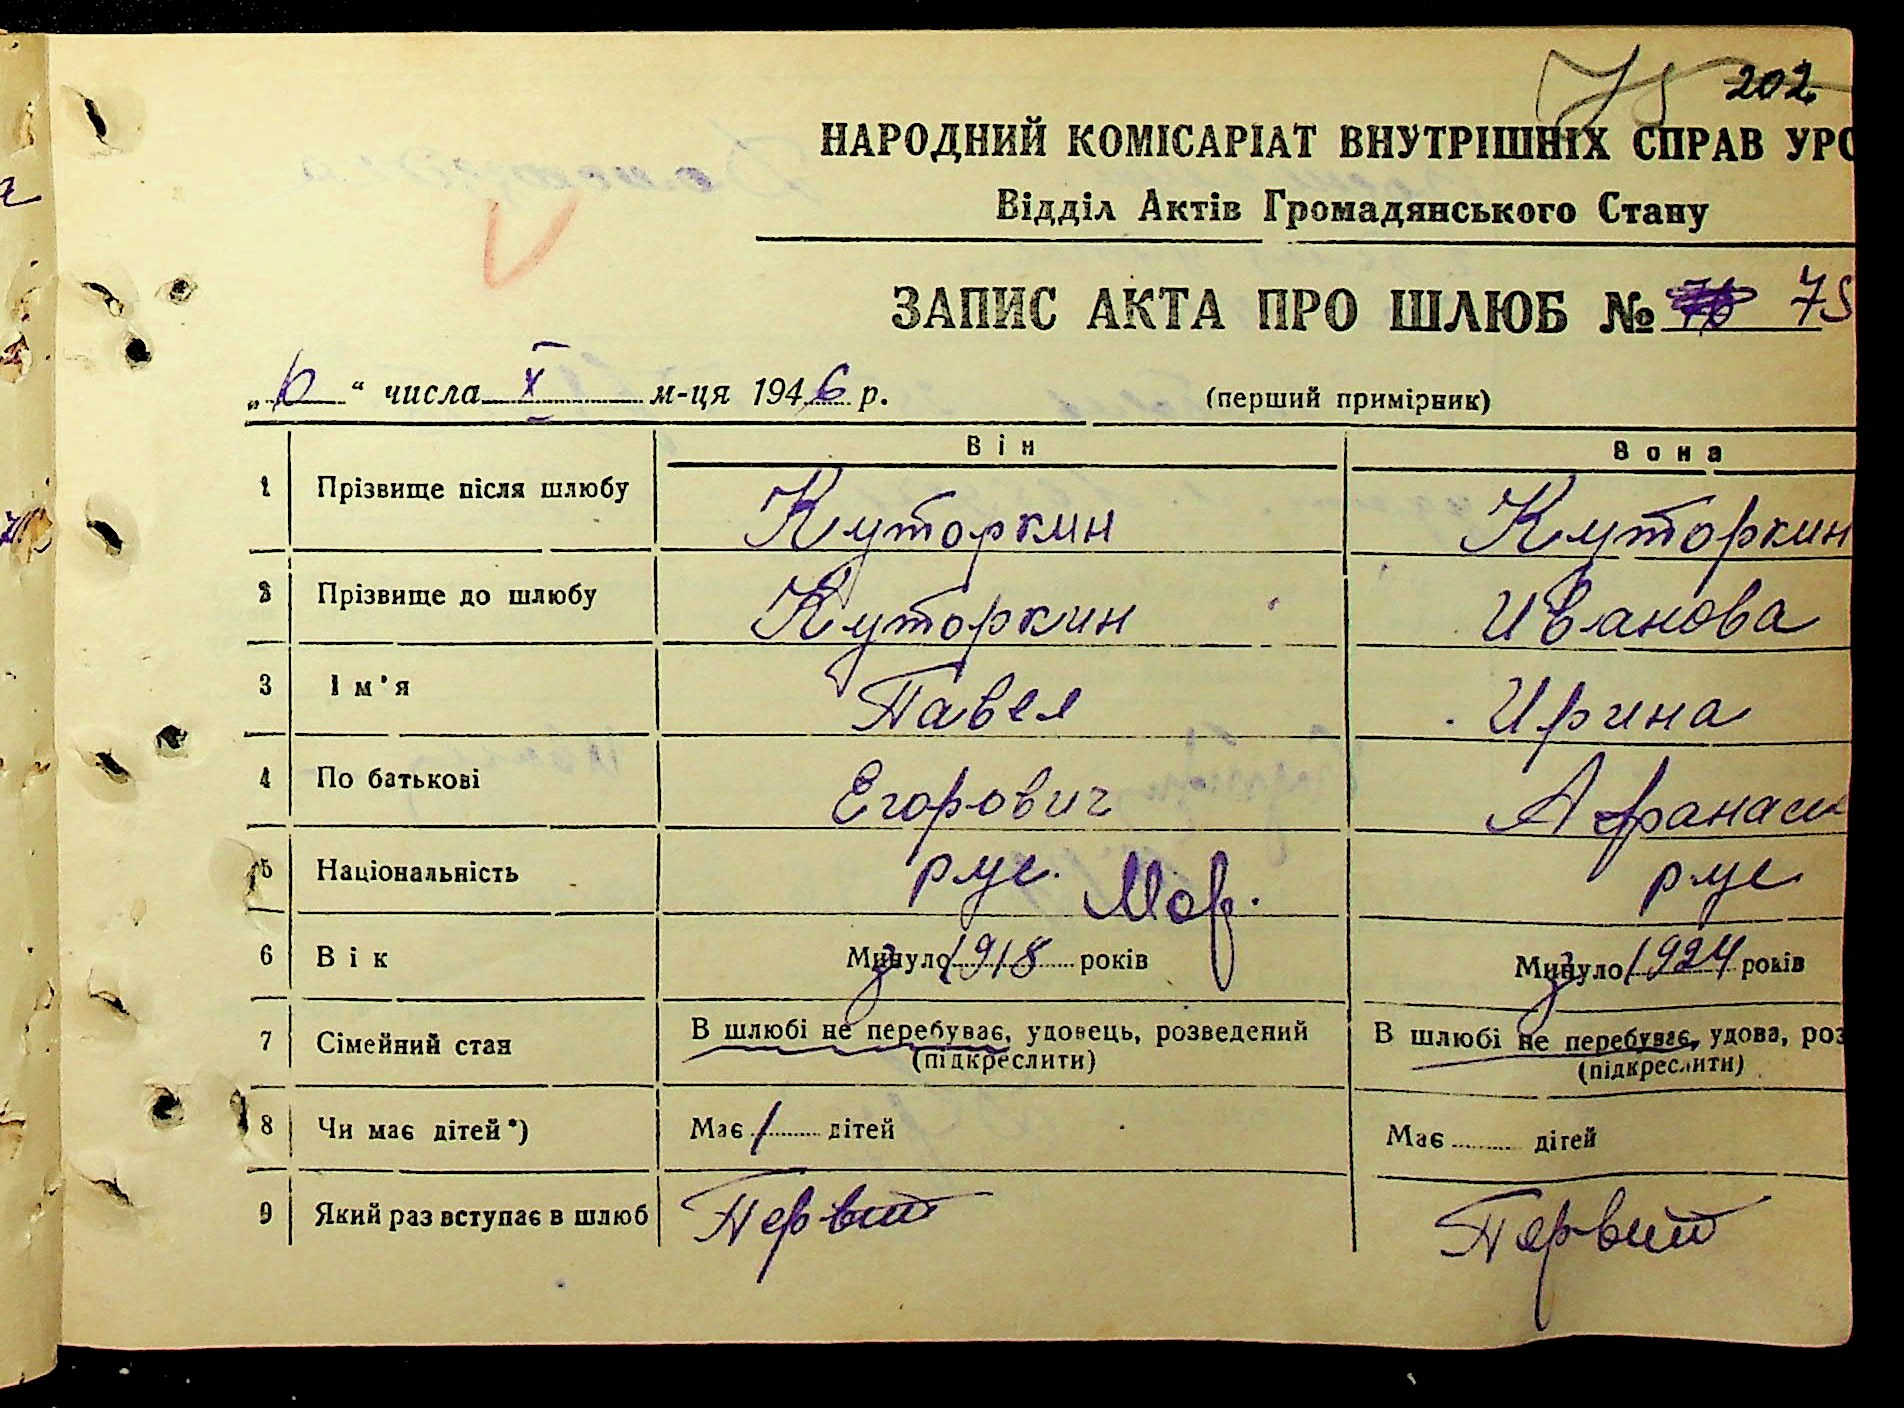 75 202
НАРОДНИЙ КОМІСАРІАТ ВНУТРІШНІХ СПРАВ УРС
Відділ Актів Громадянського Стану
ЗАПИС АКТА ПРО ШЛЮБ № 76 75
„6“ числа X м-ця 1946 р. (перший примірник)
Він Вона
1 Прізвище після шлюбу Куторкин Куторкин
2 Прізвище до шлюбу Куторкин Иванова
3 Ім'я Павел Ирина
4 По батькові Егорович Афанасие
5 Національність рус. Мор. рус
6 Вік Минуло з 1918 років Минуло з 1924 років
7 Сімейний стан В шлюбі не перебуває, удовець, розведений В шлюбі не перебуває, удова, роз
(підкреслити) (підкреслити)
8 Чи має дітей*) Має 1 дітей Має дітей
9 Який раз вступає в шлюб Первий Первий